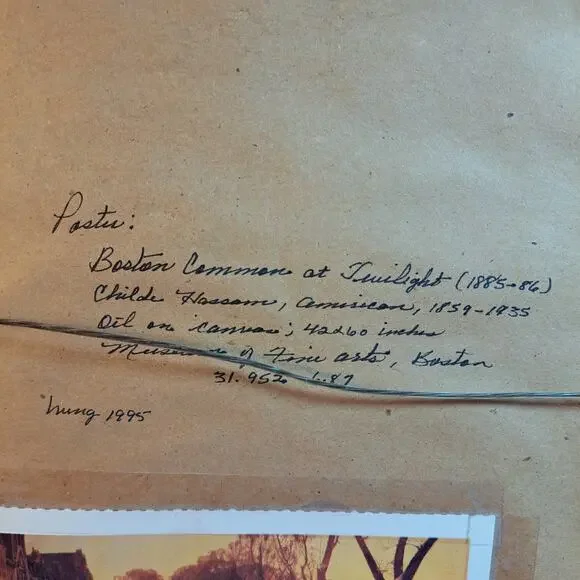 Poster:
Boston Common at Twilight (1885-86)
Childe Hassam, American, 1859-1935
Oil on canvas; 42x60 inches
Museum of Fine Arts, Boston
31.952 1.87
hung 1995